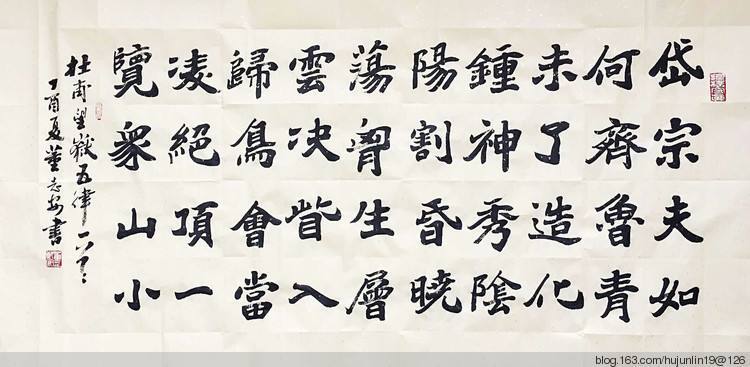 岱宗夫如
何齊魯青
未了造化
鍾神秀陰
陽割昏曉
蕩胷生層
雲決眥入
歸鳥會當
凌絕頂一
覽眾山小
杜甫望嶽五律一首
丁酉夏董志安書
blog.163.com/hujunlin19@126